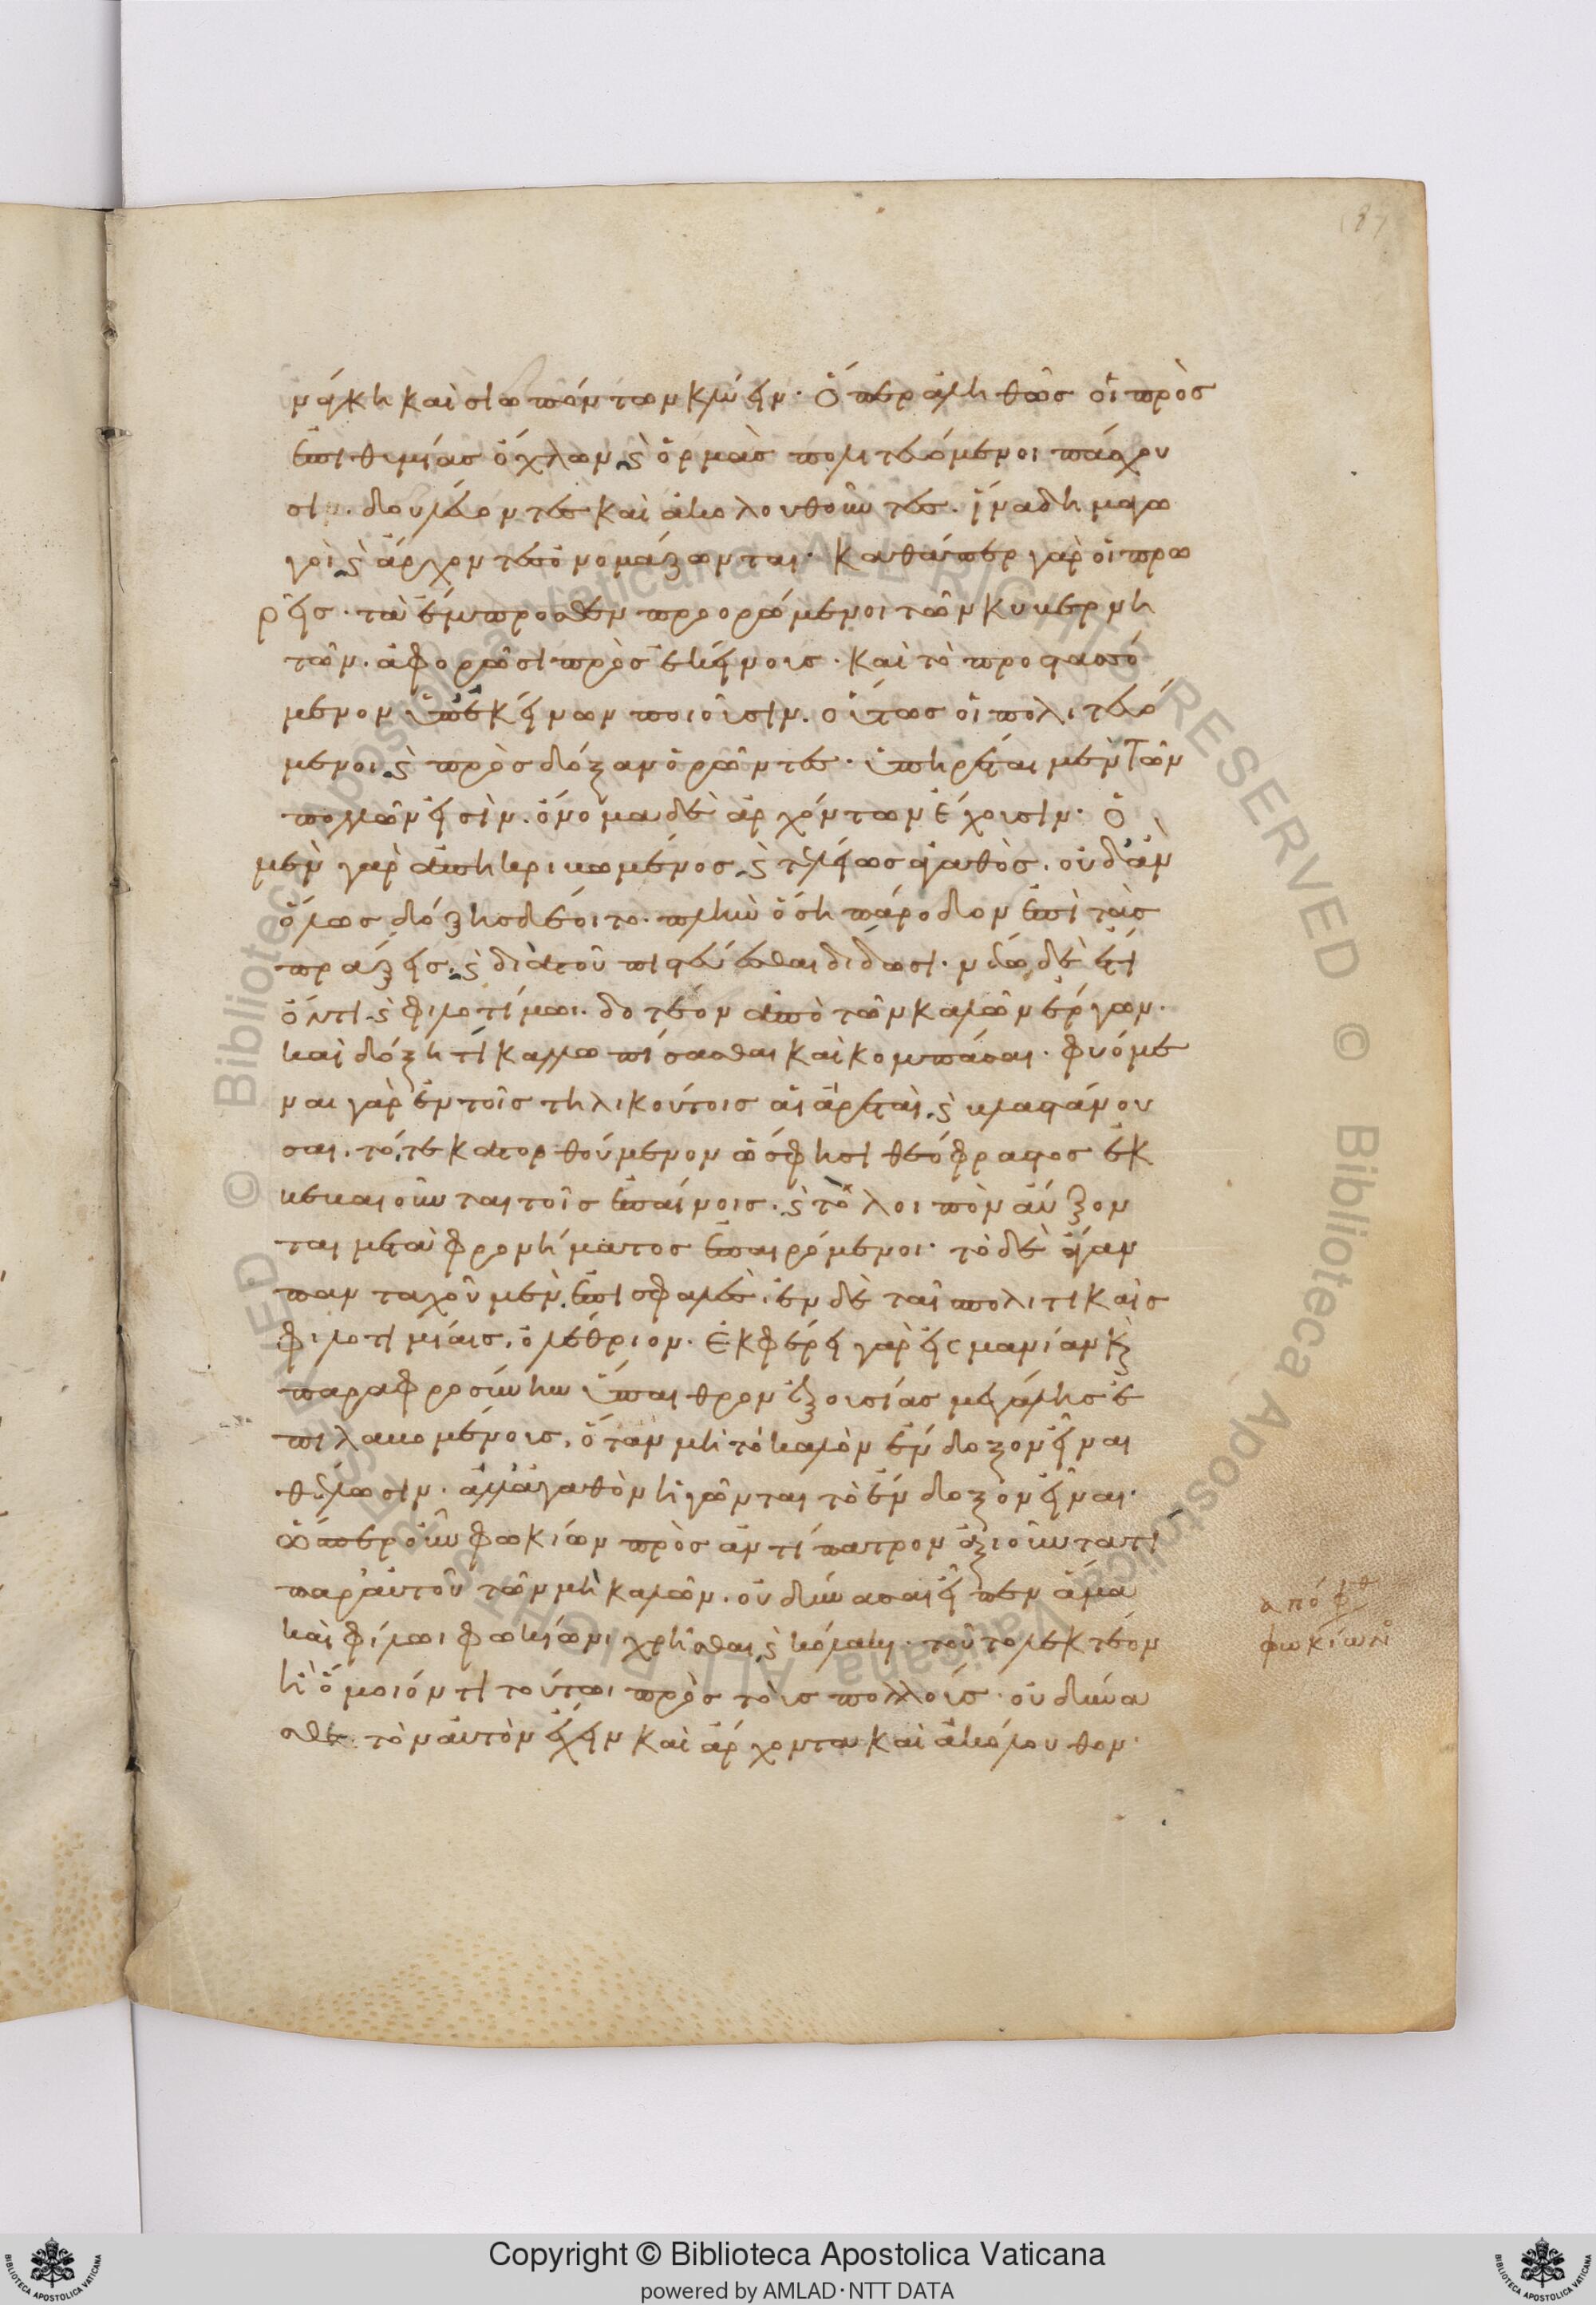 νάγκη καὶ σιωπώντων κλύειν· Ὅπερ ἀληθῶς οἱ πρὸς
ἐπιθυμίας ὄχλων ϛ ὁρμὰς πολιτευόμενοι πάσχου
σι· δουλεύοντες καὶ ἀκολουθοῦντες. ἵνα δημαγω
γοὶ ϛ ἄρχοντες ὀνομάζωνται· Καθάπερ γὰρ οἱ πρω
ρεῖς· τὰ ἔμπροσθεν προορώμενοι τῶν κυβερνη
τῶν. ἀφορῶσι πρὸς ἐκείνους· καὶ τὸ προστασσό
μενον ὑπ' ἐκείνων ποιοῦσιν. οὕτως οἱ πολιτευό
μενοι ϛ πρὸς δόξαν ὁρῶντες· ὑπηρέται μὲν τῶν
πολλῶν εἰσὶν. ὄνομα δὲ ἀρχόντων ἔχουσιν· Ὁ
μὲν γὰρ ἀπηκριβωμένος ϛ τελείως ἀγαθὸς. οὐδ' ἂν
ὅλως δόξης δέοιτο. πλὴν ὅση πάροδον ἐπὶ τὰς
πράξεις ϛ διὰ τοῦ πιστεύεσθαι δίδωσι. νέῳ δὲ ἔτι
ὄντι ϛ φιλοτίμωι. δοτέον ἀπὸ τῶν καλῶν ἔργων.
καὶ δόξῃ τὶ καλλωπίσασθαι καὶ κομπάσαι· φυόμε
ναι γὰρ ἐν τοῖς τηλικούτοις αἱ ἀρεταὶ ϛ βλαστάνου
σαι. τό, τε κατορθούμενον ὥς φησι θεόφραστος ἐκ
βεβαιοῦνται τοῖς ἐπαίνοις. ϛ τὸ λοιπὸν αὔξον
ται μετὰ φρονήματος ἐπαιρόμενοι· τὸ δὲ ἄγαν
πανταχοῦ μὲν ἐπισφαλὲς. ἐν δὲ ταῖς πολιτικαῖς
φιλοτιμίαις. ὀλέθριον. Ἐκφέρει γὰρ εἰς μανίαν κ
παραφροσύνην ὕπαιθρον ἐξουσίας μεγάλης ἐ
πιλαβομένοις. ὅταν μὴ τὸ καλὸν ἔνδοξον εἶναι
θέλωσιν. ἀλλ' ἀγαθὸν ἡγῶνται τὸ ἔνδοξον εἶναι.
ὥσπερ οὖν φωκίων πρὸς ἀντίπατρον ἀξιοῦντα τὶ
παρ' αὐτοῦ τῶν μὴ καλῶν. οὐ δύνασαι εἶπεν ἅμα
καὶ φίλωι φωκίωνι χρῆσθαι ϛ κόλακι. τοῦτο λεκτέον
ἢ ὅμοιόν τι τούτωι πρὸς τοὺς πολλούς· οὐ δύνα
σθε τὸν αὐτὸν ἔχειν καὶ ἄρχοντα καὶ ἀκόλουθον·
ἀπόφθ
φωκίων